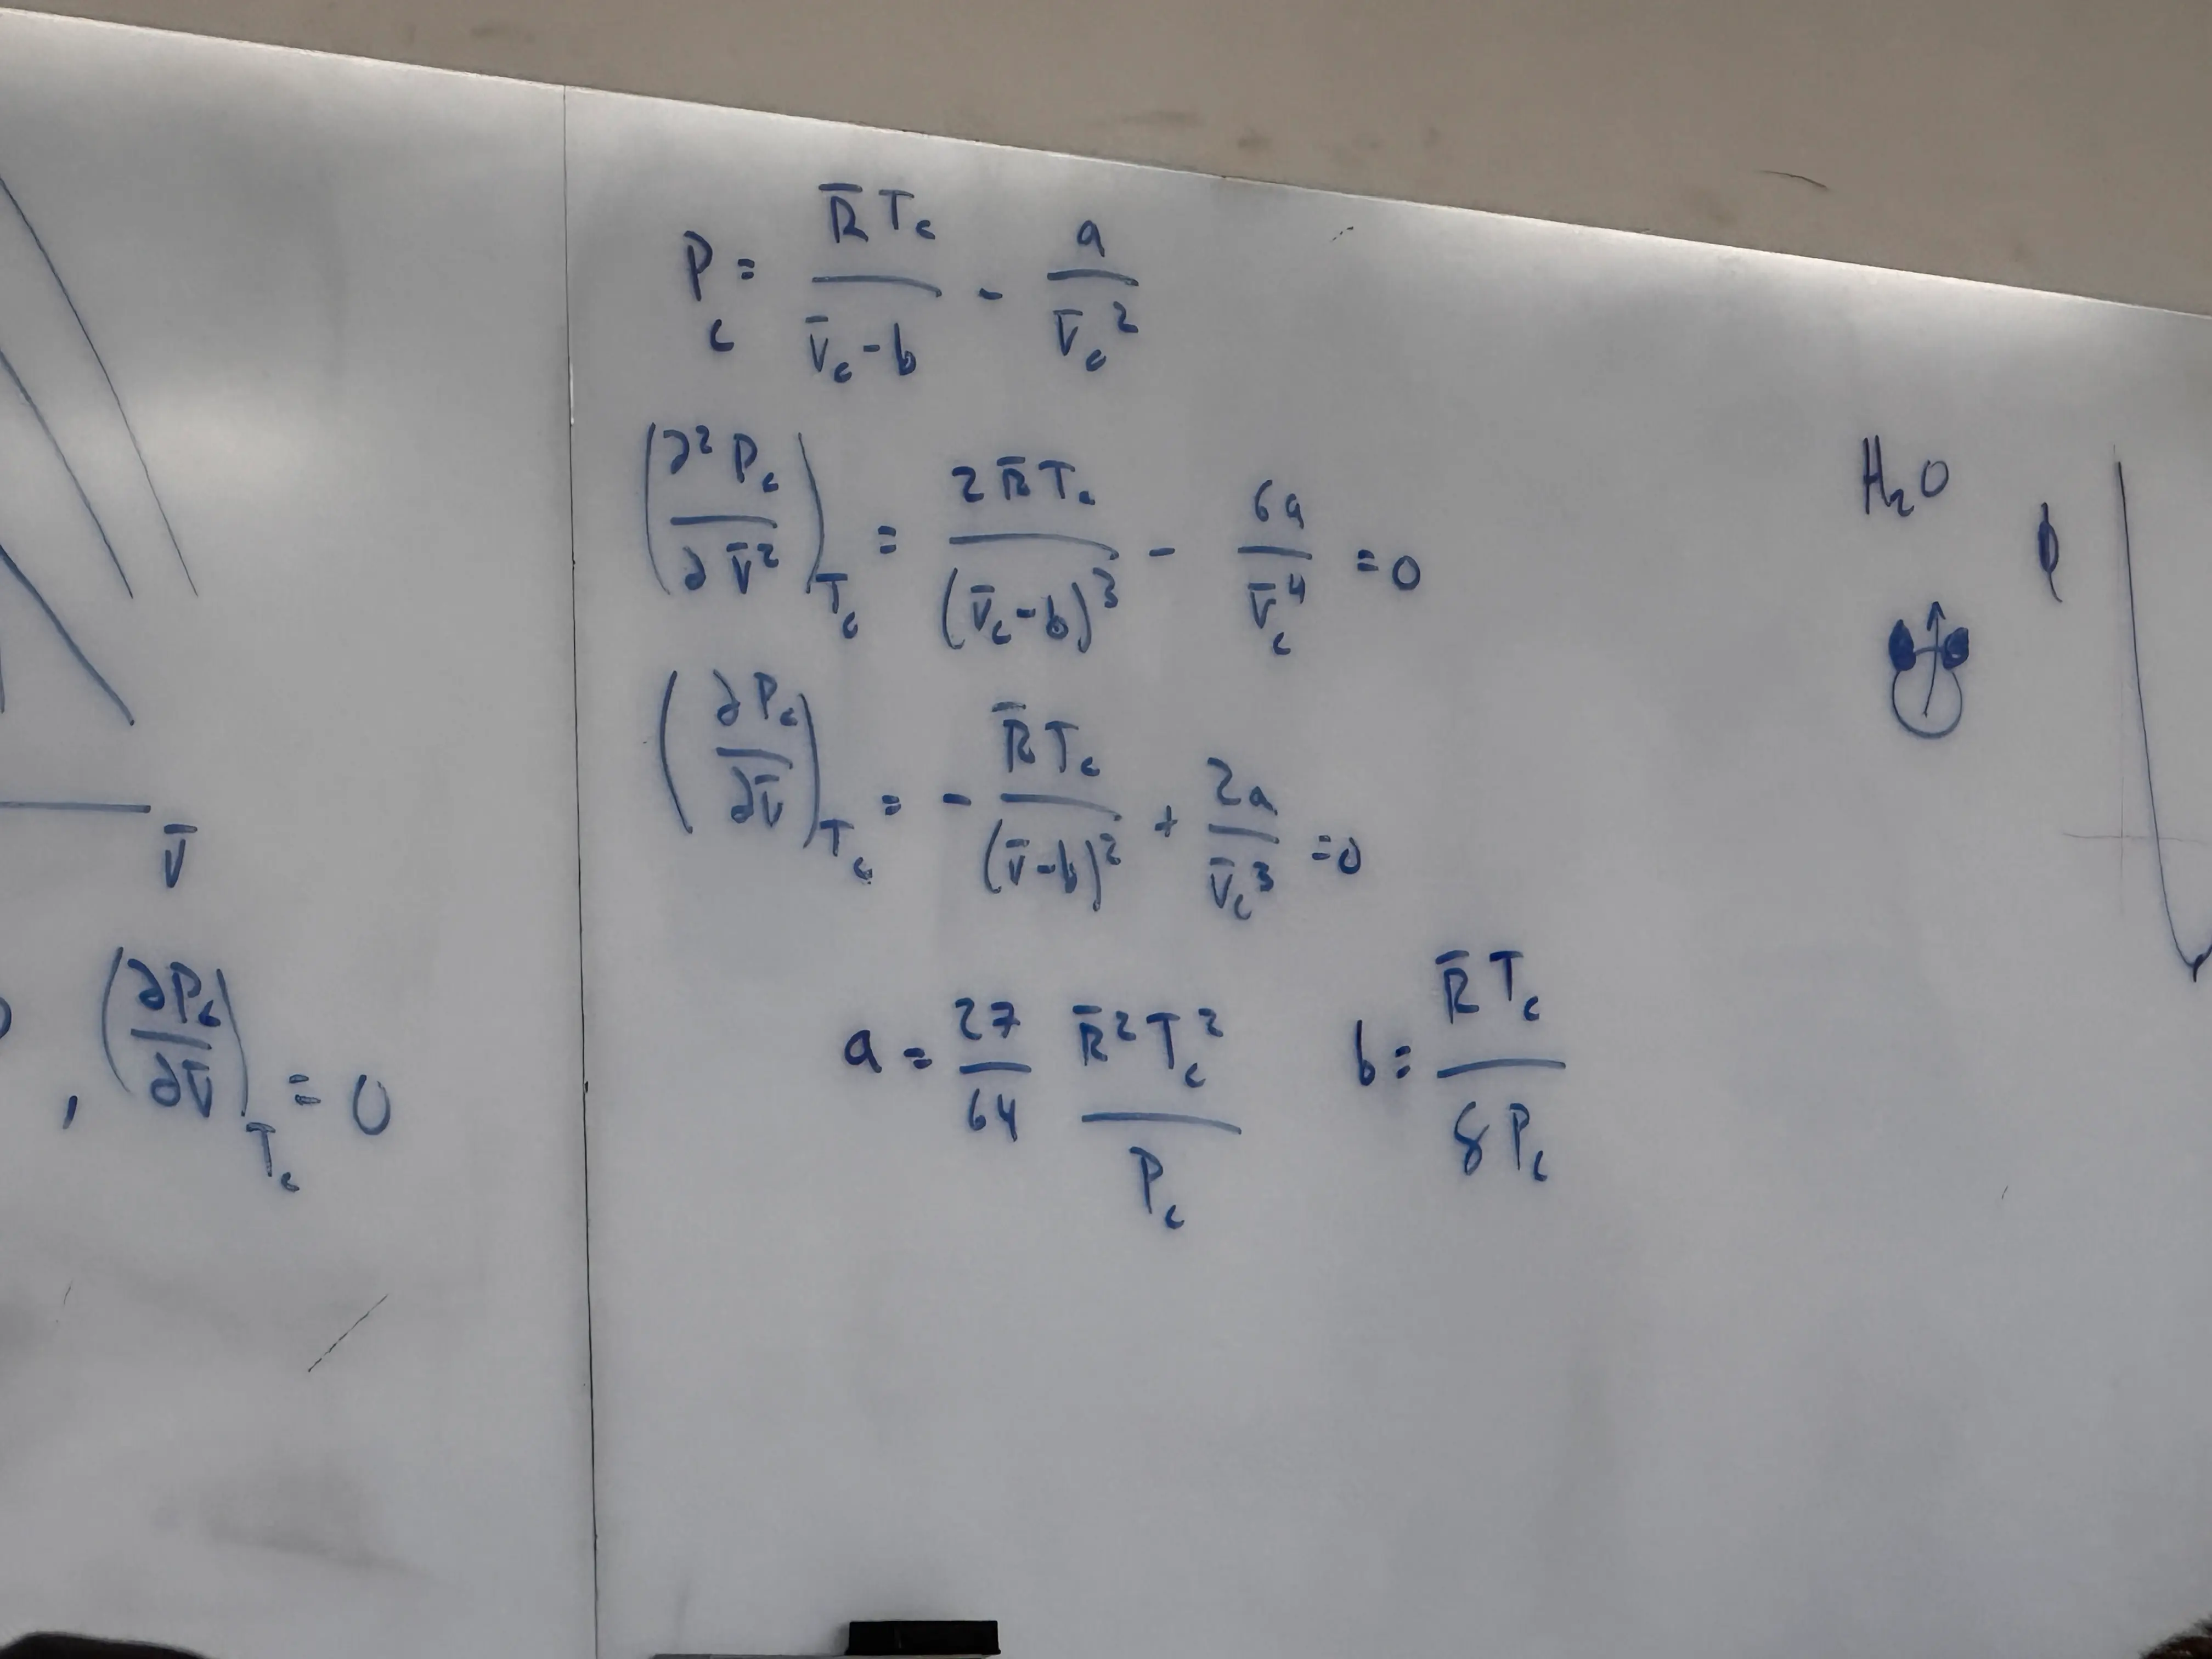 P_c = R̄T_c / (V̄_c - b) - a / V̄_c²
(∂²P_c / ∂V̄²)_T_c = 2R̄T_c / (V̄_c - b)³ - 6a / V̄_c⁴ = 0
(∂P_c / ∂V̄)_T_c = - R̄T_c / (V̄ - b)² + 2a / V̄_c³ = 0
a = 27/64 R̄²T_c² / P_c    b = R̄T_c / 8P_c
V̄
, (∂P_c / ∂V̄)_T_c = 0
H₂O